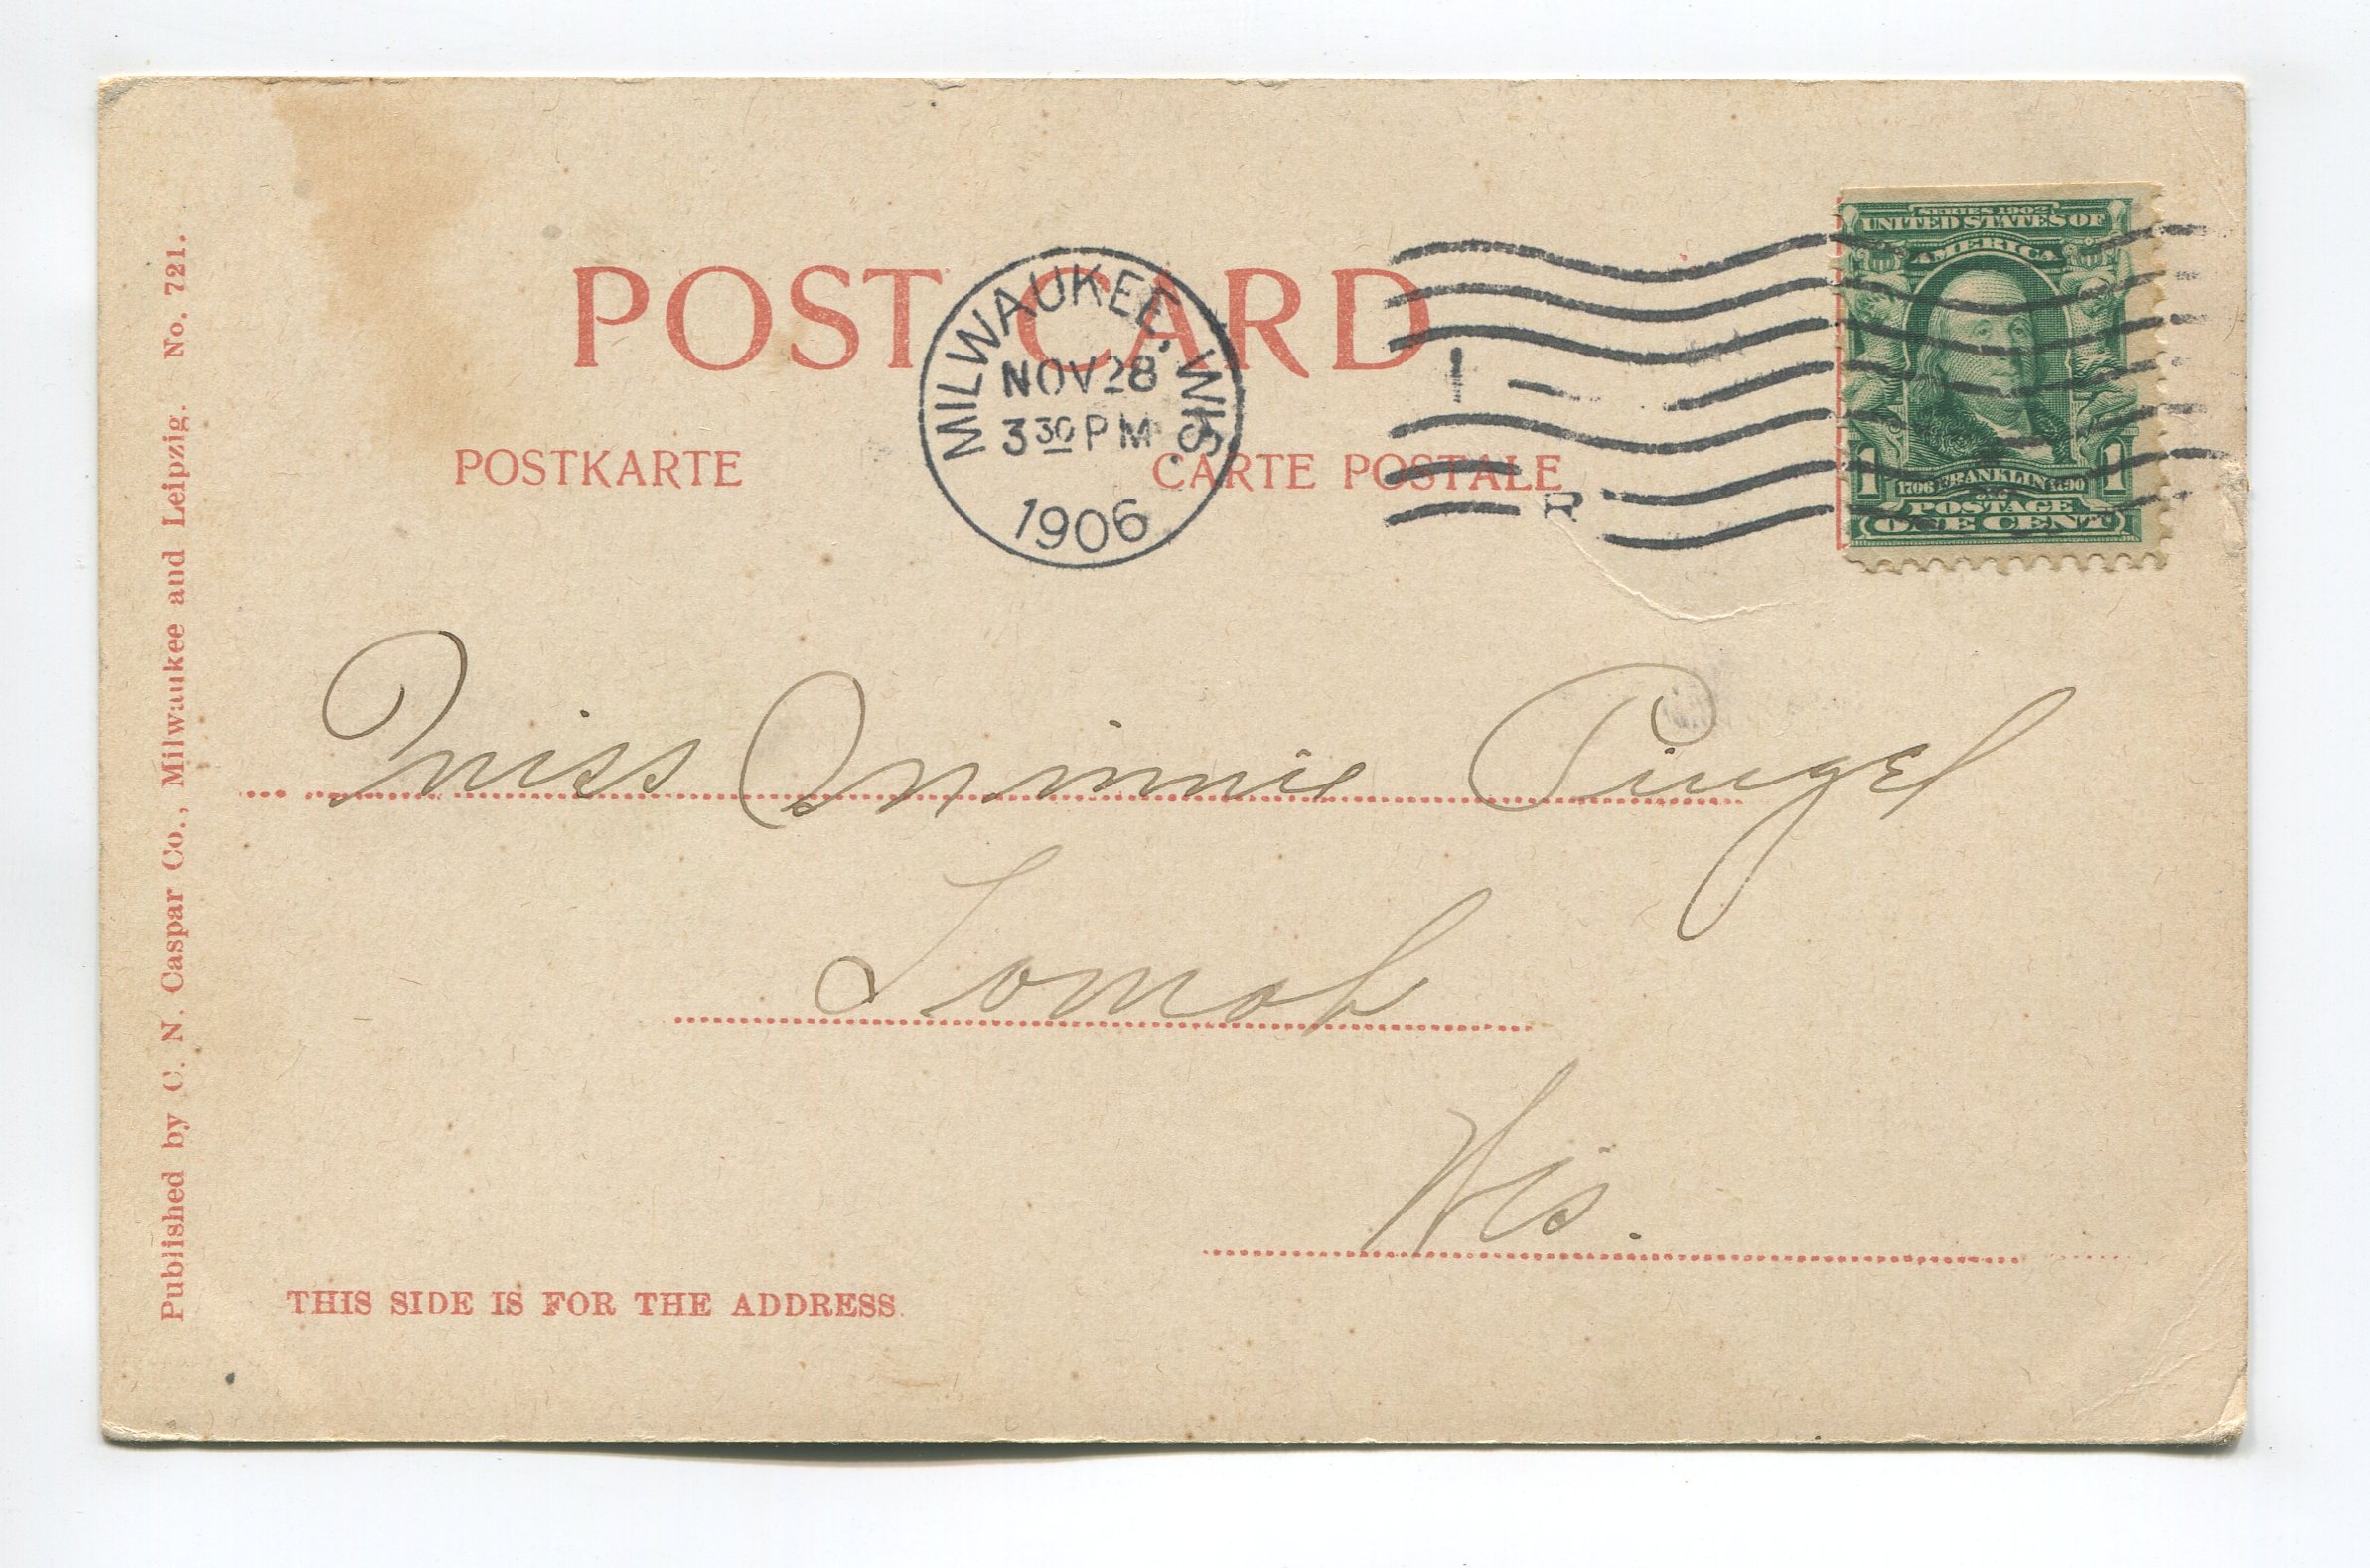 POST CARD
POSTKARTE
CARTE POSTALE
MILWAUKEE, WIS.
NOV 28
3 30 PM
1906
R
SERIES 1902
UNITED STATES OF
AMERICA
1706 FRANKLIN 1790
1 1
POSTAGE
ONE CENT
Miss Minnie Pingel
Tomah
Wis.
THIS SIDE IS FOR THE ADDRESS.
Published by C. N. Caspar Co., Milwaukee and Leipzig. No. 721.